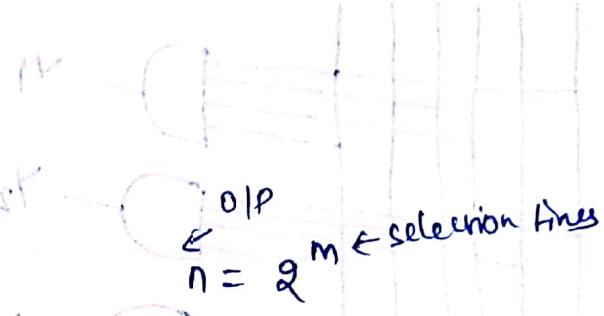 O/P
n = 2^m ← selection lines